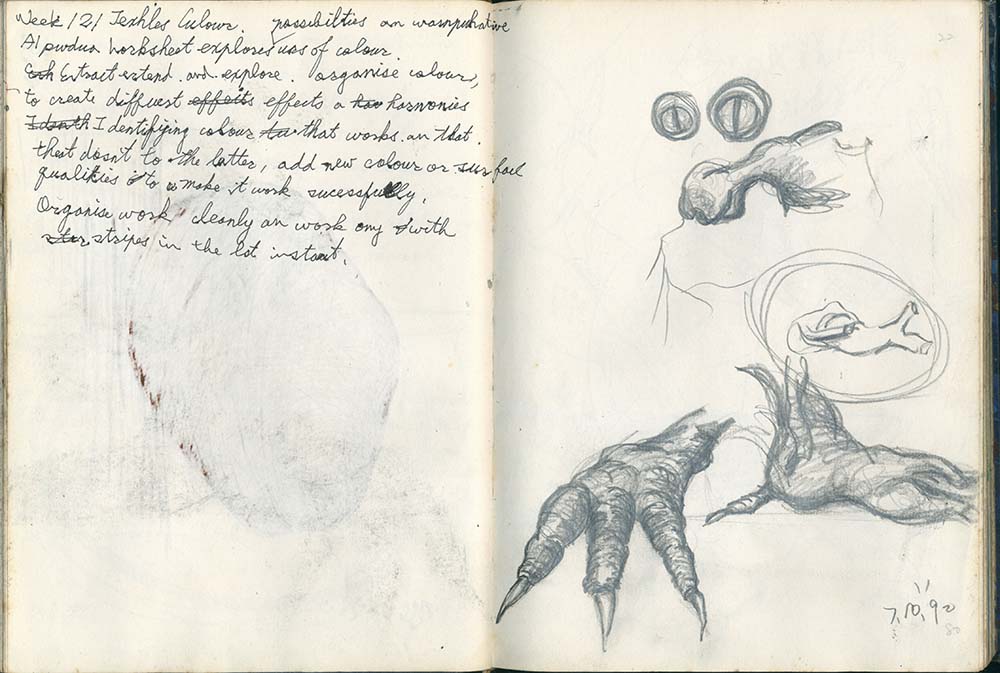 Week 12/ Textiles Colour. possibilties an
A1 Worksheet explores uos of colour.
Extract extend. and explore. organise colour,
to create diffuest effeits effects a harmonies
I dentifying colour that works. an that.
that dosnt to the latter, add new colour or
qualities to make it work sucessfully.
Organise work cleanly an work ony with
stripes in the lst instant.
7.10.90